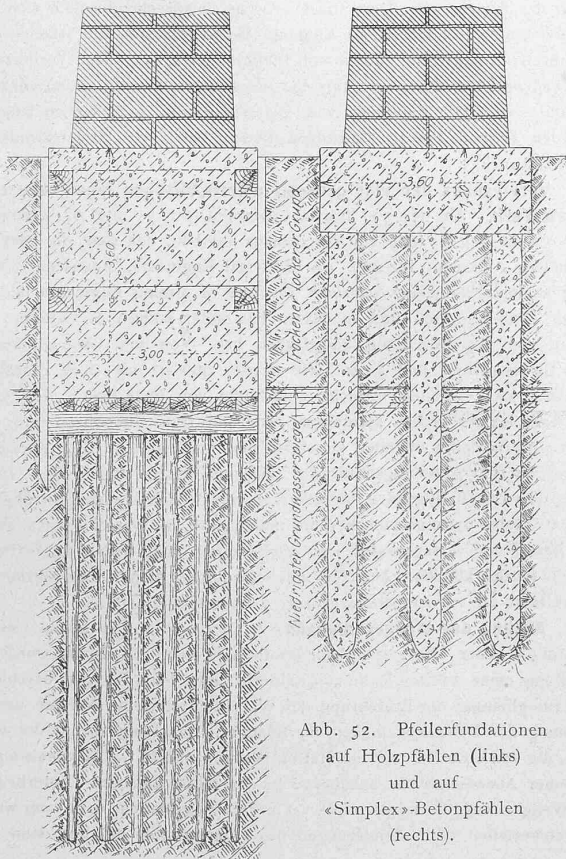 3,60
3,00
Trockener lockerer Grund
Niedrigster Grundwasserspiegel
3,60
1,20
Abb. 52. Pfeilerfundationen
auf Holzpfählen (links)
und auf
«Simplex»-Betonpfählen
(rechts).